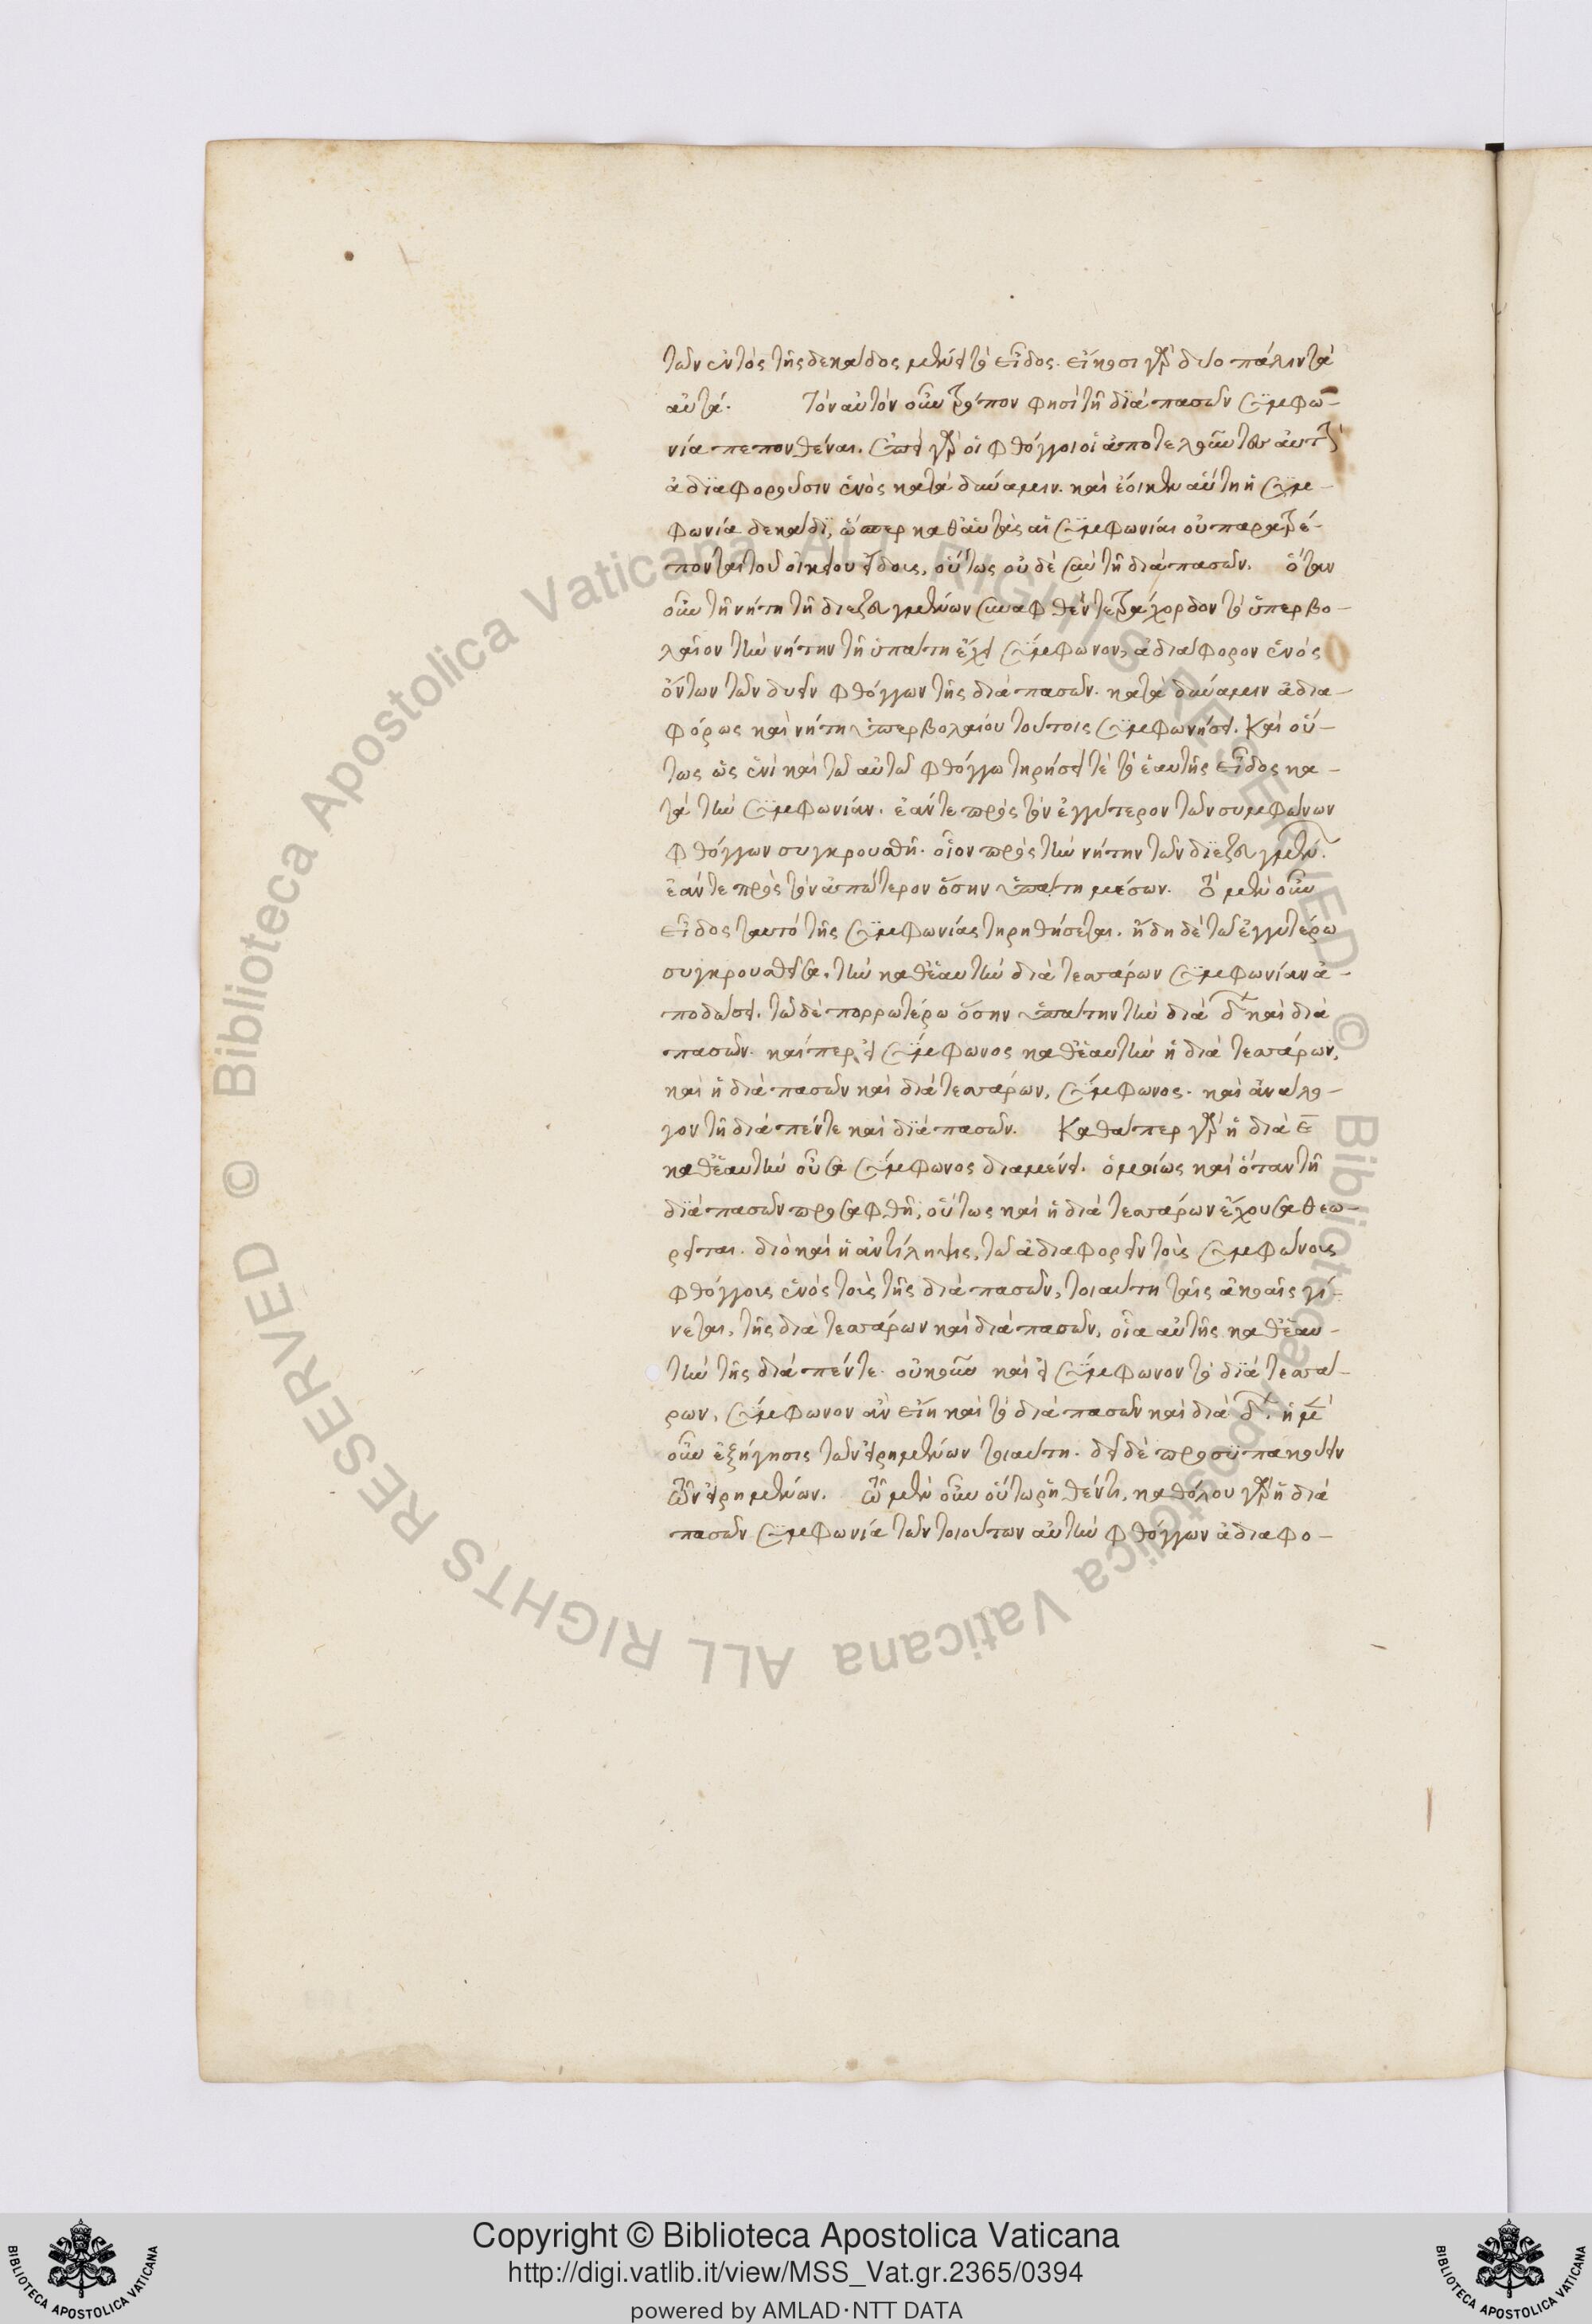 τῶν ἐντὸς τῆς δεκάδος μένει τὸ εἶδος. εἴκοσι γὰρ δύο πάλιν τὰ
αὐτά. Τὸν αὐτὸν οὖν τρόπον φησὶ τῇ διὰ πασῶν συμφω-
νία πεπονθέναι. ἐπεὶ γὰρ οἱ φθόγγοι οἱ ἀποτελοῦντες αὐτὴν
ἀδιαφοροῦσιν ἑνὸς κατὰ δύναμιν. καὶ ἔοικεν αὕτη ἡ συμ-
φωνία δεκάδι, ὥσπερ καθ' αὑτὰς αἱ συμφωνίαι οὐ παρατρέ-
πονται τοῦ οἰκείου εἴδους, οὕτως οὐδὲ σὺν τῇ διὰ πασῶν. ὅταν
οὖν τῇ νήτῃ τῇ διεζευγμένων συναφθὲν τετράχορδον τὸ ὑπερβο-
λαῖον τὴν νήτην τῇ ὑπάτῃ ἔχει σύμφωνον, ἀδιάφορον ἑνὸς
ὄντων τῶν δυεῖν φθόγγων τῆς διὰ πασῶν. κατὰ δύναμιν ἀδια-
φόρως καὶ νήτη ὑπερβολαίου τούτοις συμφωνήσει. Καὶ οὕ-
τως ὡς ἑνὶ καὶ τῷ αὐτῷ φθόγγω τηρήσει τὲ τὸ ἑαυτῆς εἶδος κα-
τὰ τὴν συμφωνίαν. ἐάν τε πρὸς τὸν ἐγγύτερον τῶν συμφώνων
φθόγγων συγκρουσθῇ. οἷον πρὸς τὴν νήτην τῶν διεζευγμένων.
ἐάν τε πρὸς τὸν ἀπώτερον ὅσην ὑπάτη μέσων. Τὸ μὲν οὖν
εἶδος ταυτὸ τῆς συμφωνίας τηρηθήσεται. ἤδη δὲ τῷ ἐγγυτέρω
συγκρουσθεῖσα, τὴν καθ' ἑαυτὴν διὰ τεσσάρων συμφωνίαν ἀ-
ποδώσει. τῷ δὲ πορρωτέρω ὅσην ὑπάτην τὴν διὰ δ καὶ διὰ
πασῶν. καίπερ εἰ σύμφωνος καθ' ἑαυτὴν ἡ διὰ τεσσάρων,
καὶ ἡ διὰ πασῶν καὶ διὰ τεσσάρων, σύμφωνος. καὶ ἀνάλο-
γον τῇ διὰ πέντε καὶ διὰ πασῶν. Καθάπερ γὰρ ἡ διὰ ε
καθ' ἑαυτὴν οὖσα σύμφωνος διαμένει. ὁμοίως καὶ ὅταν τῇ
διὰ πασῶν προσαφθῇ, οὕτως καὶ ἡ διὰ τεσσάρων ἔχουσα θεω-
ρεῖται. διὸ καὶ ἡ ἀντίληψις, τῷ ἀδιαφορεῖν τοὺς συμφώνους
φθόγγους ἑνὸς τοὺς τῆς διὰ πασῶν, τοιαύτη ταῖς ἀκοαῖς γί-
νεται, τῆς διὰ τεσσάρων καὶ διὰ πασῶν, οἵα αὐτῆς καθ' ἑαυ-
τὴν τῆς διὰ πέντε. οὐκοῦν καὶ εἰ σύμφωνον τὸ διὰ τεσσά-
ρων, σύμφωνον ἂν εἴη καὶ τὸ διὰ πασῶν καὶ διὰ δ. ἡ μὲν
οὖν ἐξήγησις τῶν εἰρημένων τοιαύτη. δεῖ δὲ προσυπακούειν
τῶν εἰρημένων. τῷ μὲν οὖν οὕτω ῥηθέντι, καθόλου γὰρ ἡ διὰ
πασῶν συμφωνία τῶν τοιούτων αὐτὴν φθόγγων ἀδιαφο-
Copyright © Biblioteca Apostolica Vaticana
http://digi.vatlib.it/view/MSS_Vat.gr.2365/0394
powered by AMLAD·NTT DATA
BIBLIOTECA APOSTOLICA VATICANA
BIBLIOTECA APOSTOLICA VATICANA
© Biblioteca Apostolica Vaticana ALL RIGHTS RESERVED
© Biblioteca Apostolica Vaticana ALL RIGHTS RESERVED